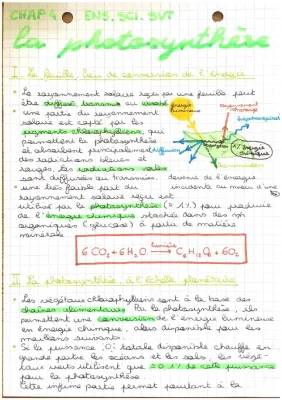 CHAP 4 ENS. SCI. SVT
La photosynthèse
I La feuille, lieu de conversion de l'énergie
• Le rayonnement solaire reçu par une feuille peut
être diffusé, transmis ou
• une partie du rayonnement
solaire est capté par les
pigments chlorophylliens, qui
permettent la photosynthèse
et absorbent principalement
des radiations bleues et
rouges, les radiations
sont diffusées ou transmises.
énergie
lumineuse
rayonnement
énergie
chimique
devenir de l'énergie
incidente au niveau d'une
• une très faible part du
rayonnement solaire reçu est
utilisé par la photosynthèse (0.1%) pour produire
de l'énergie chimique stockée dans des
organiques (glucose) à partir de matière
minérale
lumière
6 CO₂ + 6 H₂O → C₆H₁₂O₆ + 6O₂
II La photosynthèse, à l'échelle planétaire
• Les végétaux chlorophylliens sont à la base des
chaînes alimentaires. Par la photosynthèse, ils
permettent une conversion de l'énergie lumineuse
en énergie chimique, alors disponible pour les
maillons suivants.
• Si la puissance totale disponible chauffe en
grande partie les océans et les sols, les végé-
taux verts utilisent que 0.1% de cette puissance
pour la photosynthèse.
Cette infime partie permet pourtant à la